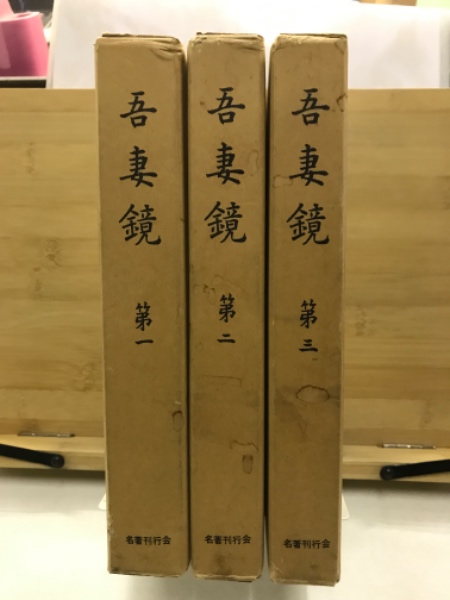 吾妻鏡
第一
名著刊行会
吾妻鏡
第二
名著刊行会
吾妻鏡
第三
名著刊行会